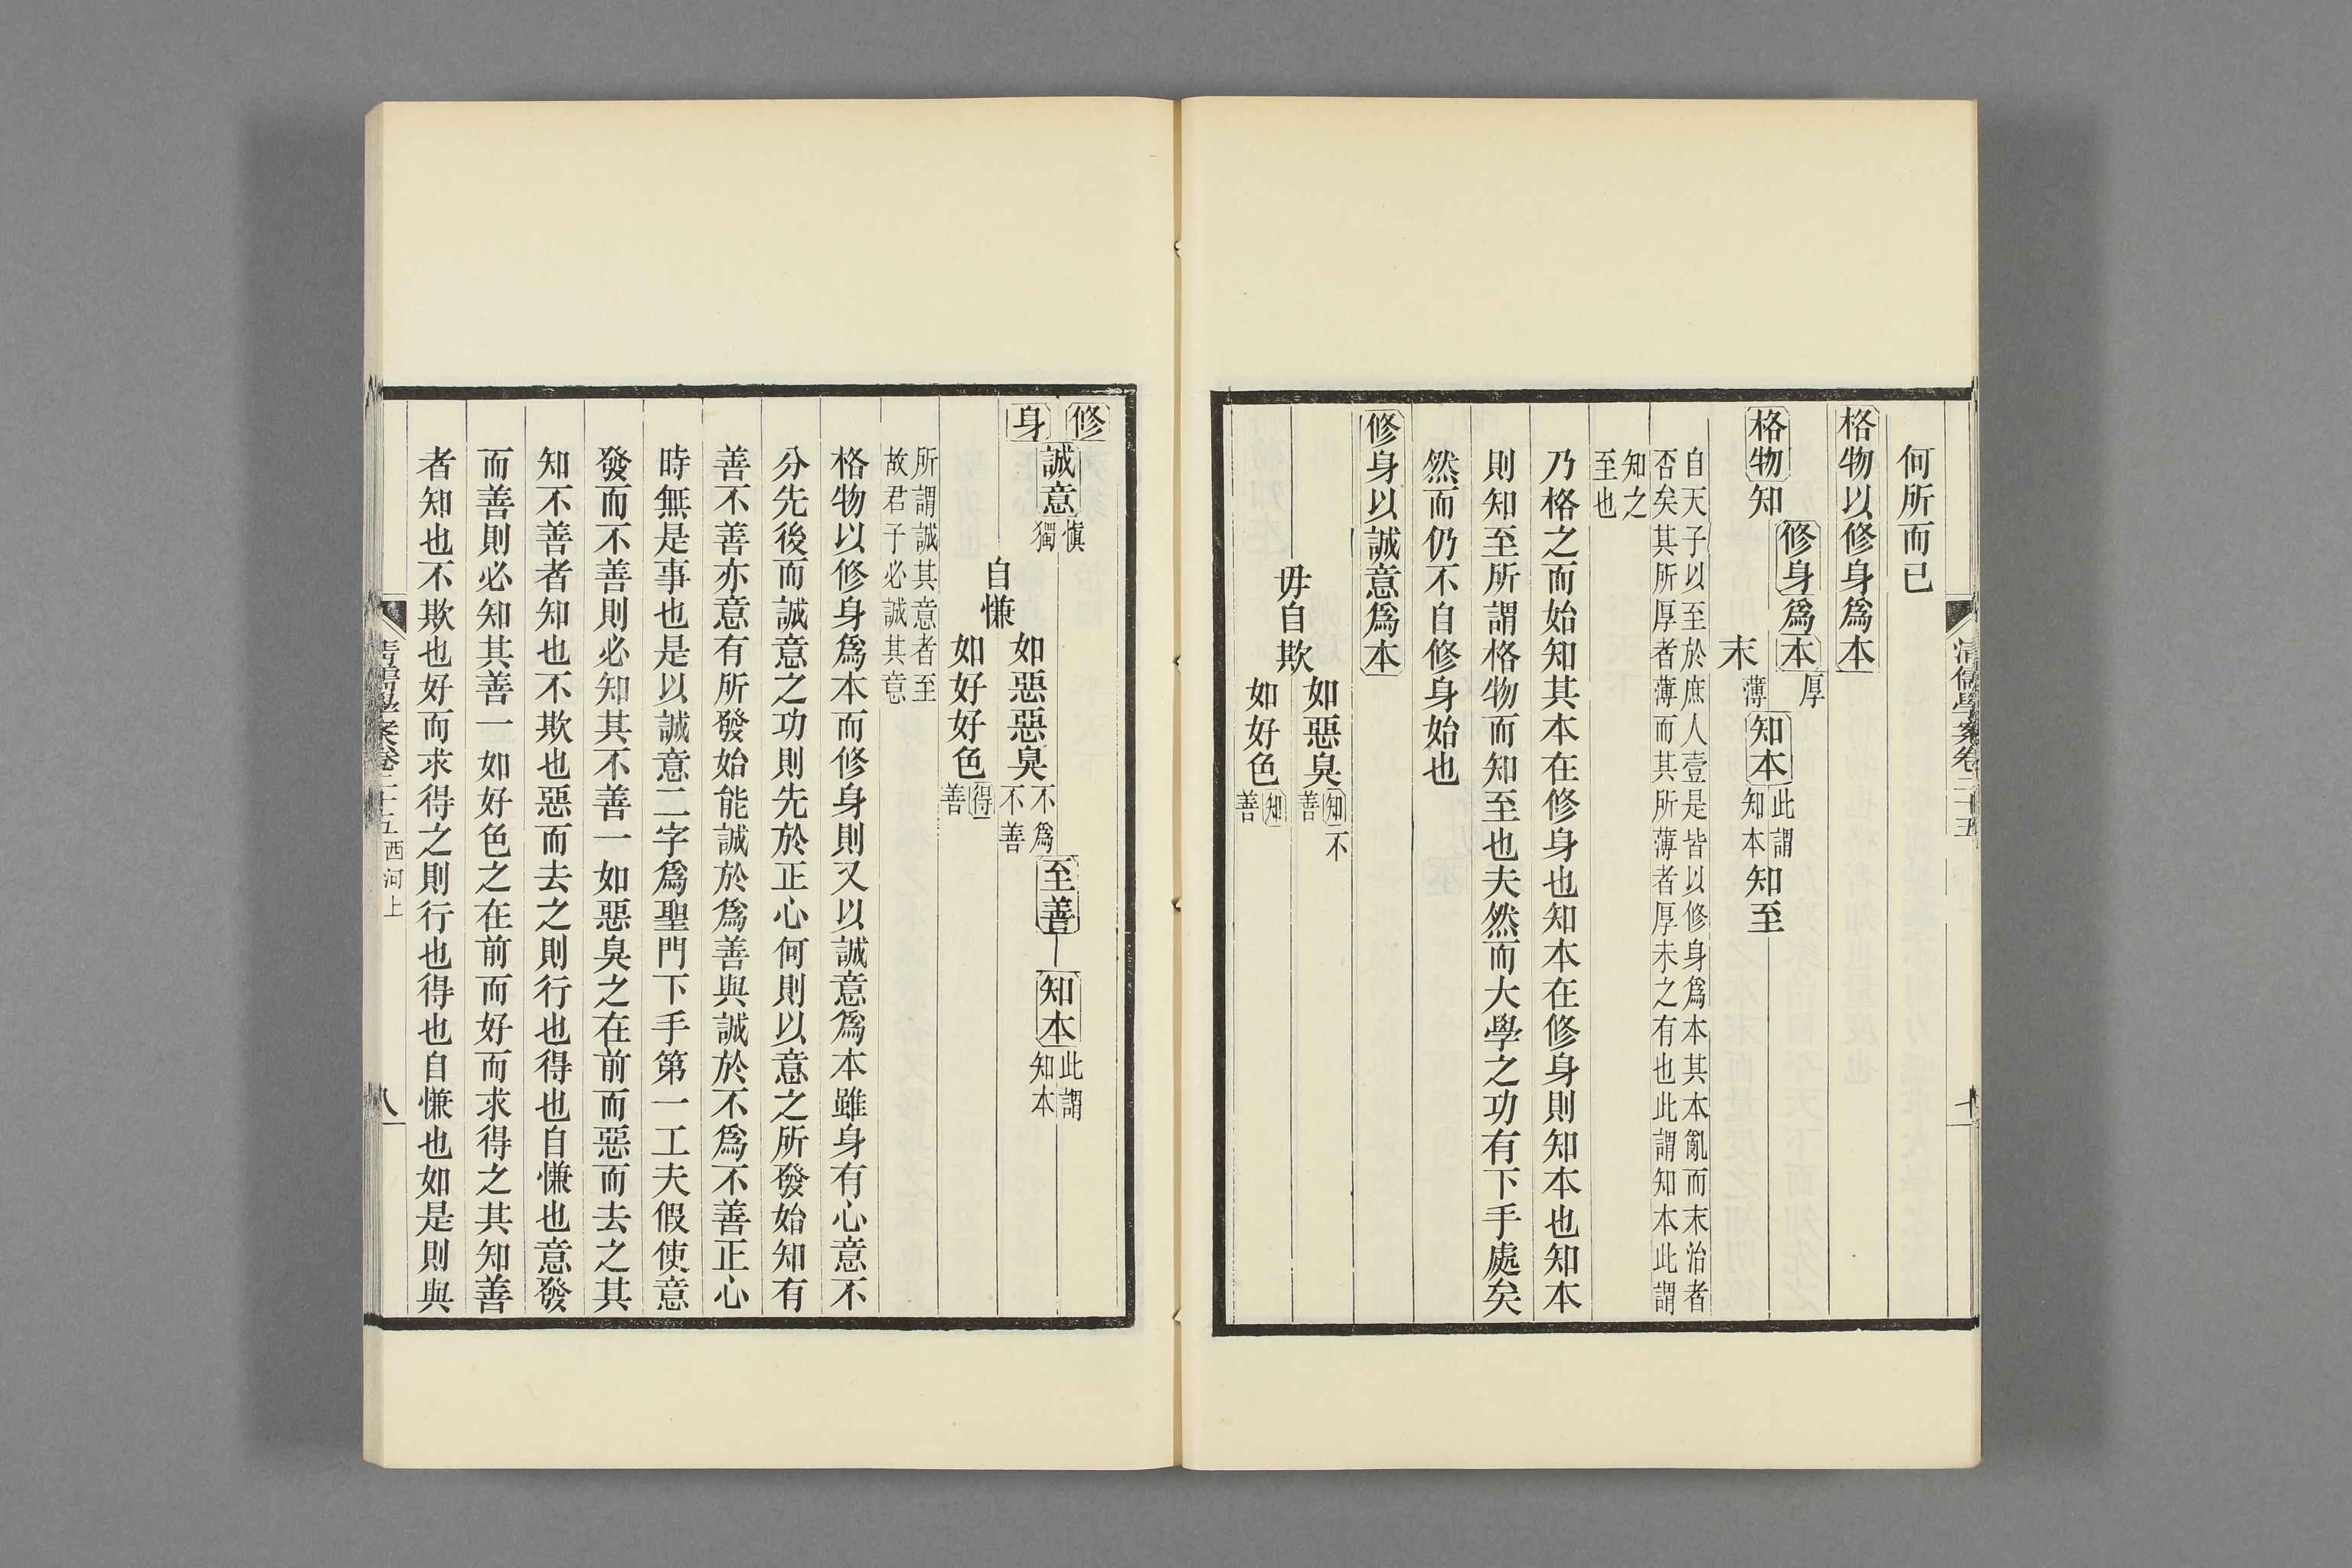 何所而已
格物以修身爲本
格物知
修身爲本厚
末薄
知本
此謂
知本
知至
自天子以至於庶人壹是皆以修身爲本其本亂而末治者
否矣其所厚者薄而其所薄者厚未之有也此謂知本此謂
知之
至也
乃格之而始知其本在修身也知本在修身則知本也知本
則知至所謂格物而知至也夫然而大學之功有下手處矣
然而仍不自修身始也
修身以誠意爲本
毋自欺
如惡惡臭知不
善
如好好色知
善
清儒學案卷二十五
修
身
誠意
慎
獨
自慊
如惡惡臭
不爲
不善
如好好色
得
善
至善
知本
此謂
知本
所謂誠其意者至
故君子必誠其意
格物以修身爲本而修身則又以誠意爲本雖身有心意不
分先後而誠意之功則先於正心何則以意之所發始知有
善不善亦意有所發始能誠於爲善與誠於不爲不善正心
時無是事也是以誠意二字爲聖門下手第一工夫假使意
發而不善則必知其不善一如惡臭之在前而惡而去之其
知不善者知也不欺也惡而去之則行也得也自慊也意發
而善則必知其善一如好色之在前而好而求得之其知善
者知也不欺也好而求得之則行也得也自慊也如是則與
清儒學案卷二十五
西河上
八